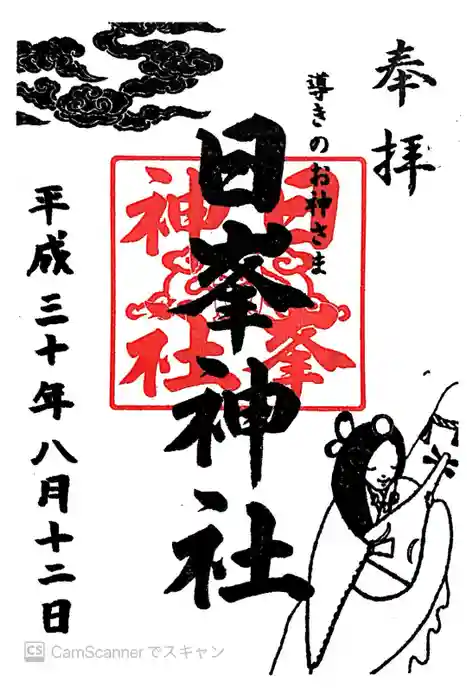 奉拝
導きのお神さま
日峯神社
日峯
神社
平成三十年八月十二日
CS CamScannerでスキャン